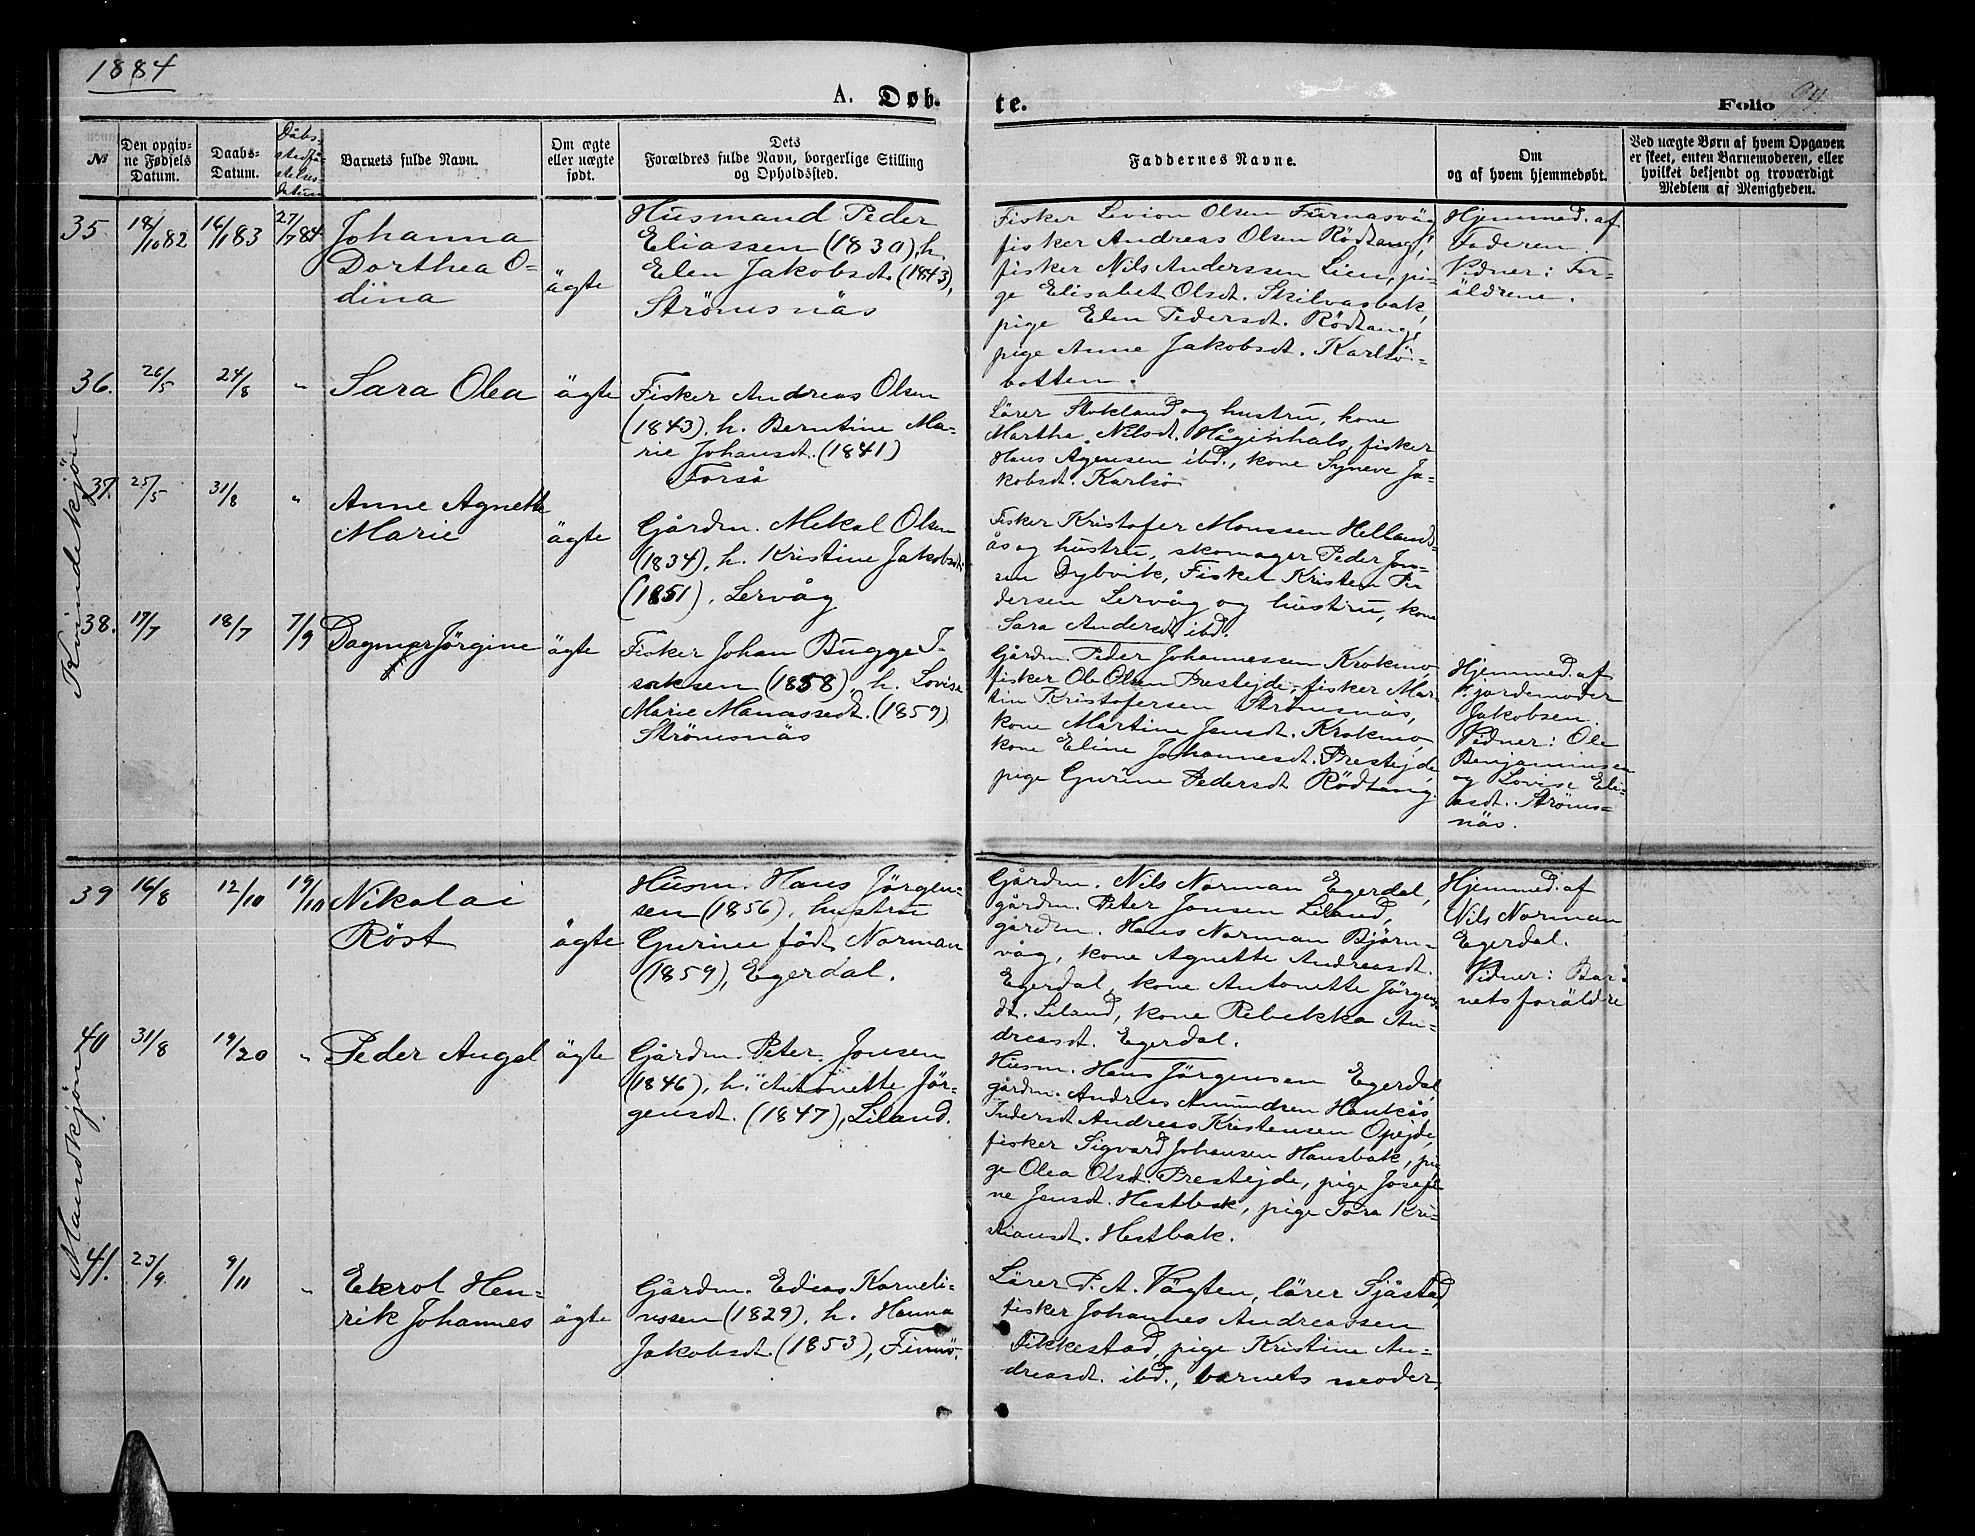 1884
A. Døb-
te.
Folio 94.
№
Den opgiv-
ne Fødsels
Datum.
Daabs-
Datum.
Dåbs-
stedfä-
stelses-
datum
Barnets fulde Navn.
Om ægte
eller uægte
født.
Dets
Forældres fulde Navn, borgerlige Stilling
og Opholdssted.
Faddernes Navne.
Om
og af hvem hjemmedøbt.
Ved uægte Børn af hvem Opgaven
er skeet, enten Barnemoderen, eller
hvilket bekjendt og troværdigt
Medlem af Menigheden.
Kvindekjön
35
18/10 82
16/1 83
27/7 84
Johanna
Dorthea O-
dina
ägte
Husmand Peder
Eliassen (1830), h.
Elen Jakobsdt. (1843),
Strömsnäs
Fisker Levion Olsen Furnasvåg,
fisker Andreas Olsen Rödtang,
fisker Nils Anderssen Lien, pi-
ge Elisabet Olsdt. Skilvasbak,
pige Elen Pedersdt. Rödtang,
pige Anne Jakobsdt. Karlsö-
botten.
Hjemmed. af
Faderen.
Vidner: For-
äldrene.
36.
26/5
24/8
"
Sara Olea
ägte
Fisker Andreas Olsen
(1843), h. Berntine Ma-
rie Johansdt. (1841)
Forså
Lärer Stokland og hustru, kone
Martha Nilsdt. Håginhals, fisker
Hans Agensen ibd., kone Syneve Ja-
kobsdt. Karlsö
37.
25/5
31/8
"
Anne Agnette
Marie
ägte
Gårdm. Mekal Olsen
(1834), h. Kristine Jakobsdt.
(1851), Lervåg
Fisker Kristofer Monssen Hellands-
ås og hustru, skomager Peder Jon-
sen Dybvik, Fisker Kristen Pe-
dersen Lervåg og hustru, kone
Sara Andersdt. ibd.
38.
17/7
18/7
7/9
Dagmar Jörgine
ägte
Fisker Johan Bugge I-
saksen (1858), h. Lovise
Marie Manassedt. (1859)
Strömsnäs
Gårdm. Peder Johannessen Krokmo,
fisker Ole Olsen Prestejde, fisker Mar-
tin Kristofersen Strömsnäs,
kone Martine Jensdt. Krokmo,
kone Eline Johannesdt. Prestejde,
pige Gurine Pedersdt. Rödtang.
Hjemmed. af
Fjordemoder
Jakobsen.
Vidner: Ole
Benjaminsen
og Lovise Eli-
asdt. Ströms-
näs.
Mandkjön
39
16/8
12/10
19/10
Nikolai
Röst
ägte
Husm. Hans Jörgen-
sen (1856), hustru
Gurine født Norman
(1859), Egerdal.
Gårdm. Nils Norman Egerdal,
gårdm. Peter Jonsen Liland,
gårdm. Hans Norman Bjørn-
våg, kone Agnette Andreasdt.
Egerdal, kone Antonette Jörgens-
dt. Liland, kone Rebekka An-
dreasdt. Egerdal.
Hjemmed. af
Nils Norman
Egerdal.
Vidner: Bar-
nets foräldre
40
31/8
19/20
"
Peder Angel
ägte
Gårdm. Peter Jonsen
(1846), h. Antonette Jör-
gensdt. (1847), Liland.
Husm. Hans Jörgensen Egerdal,
gårdm. Andreas Amundsen Haukås,
Inderst Andreas Kristensen Opejde,
fisker Sigvard Johansen Hansbak, pi-
ge Olea Olsdt. Prestejde, pige Josefi-
ne Jensdt. Hestbak, pige Tora Kri-
stiansdt. Hestbak.
41.
23/9.
9/11
"
Ekrol Hen-
rik Johannes
ägte
Gårdm. Edias Korneli-
ussen (1829), h. Hanna
Jakobsdt. (1853), Finnö.
Lärer P. A. Vägten, lärer Sjåstad,
fisker Johannes Andreassen
Dikkestad, pige Kristine An-
dreasdt. ibd., barnets moder.